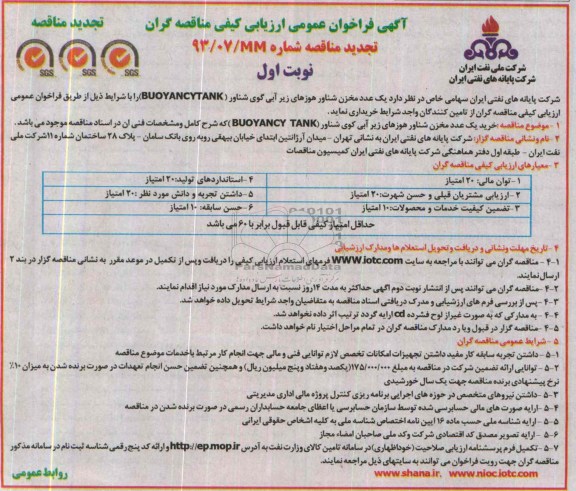 آگهی فراخوان عمومی ارزیابی کیفی مناقصه گران
تجدید مناقصه
تجدید مناقصه شماره ۹۳/۰۷/MM
نوبت اول
SGS SGS SGS
شرکت ملی نفت ایران
شرکت پایانه های نفتی ایران
شرکت پایانه های نفتی ایران سهامی خاص در نظر دارد یک عدد مخزن شناور هوزهای زیر آبی گوی شناور (BUOYANCYTANK)را با شرایط ذیل از طریق فراخوان عمومی
ارزیابی کیفی مناقصه گران از تامین کنندگان واجد شرایط خریداری نماید.
۱ - موضوع مناقصه :خرید یک عدد مخزن شناور هوزهای زیر آبی گوی شناور (BUOYANCY TANK)که شرح کامل ومشخصات فنی آن در اسناد مناقصه موجود می باشد.
۲- نام ونشانی مناقصه گزار: شرکت پایانه های نفتی ایران به نشانی تهران - میدان آرژانتین ابتدای خیابان بیهقی روبه روی بانک سامان - پلاک ۳۸ ساختمان شماره ۱۱شرکت ملی
نفت ایران - طبقه اول دفتر هماهنگی شرکت پایانه های نفتی ایران کمیسیون مناقصات
۳-معیارهای ارزیابی کیفی مناقصه گران
۱-توان مالی: ۲۰ امتیاز
۴-استانداردهای تولید:۲۰ امتیاز
۲-ارزیابی مشتریان قبلی و حسن شهرت:۲۰ امتیاز
۵-داشتن تجربه و دانش مورد نظر :۲۰ امتیاز
۳-تضمین کیفیت خدمات و محصولات:۱۰ امتیاز
۶-حسن سابقه: ۱۰ امتیاز
حداقل امتیاز کیفی قابل قبول برابر با ۶۰ می باشد
ParsNamadData
۴ -تاریخ مهلت ونشانی و دریافت وتحویل استعلام ها ومدارک ارزشیابی
۴-۱ - مناقصه گران می توانند با مراجعه به سایت www.iotc.com فرمهای استعلام ارزیابی کیفی را دریافت وپس از تکمیل در موعد مقرر به نشانی مناقصه گزار در بند ۲
ارسال نمایند
۴-۲-مناقصه گران می توانند پس از انتشار نوبت دوم آگهی حداکثر به مدت ۱۴ روز نسبت به ارسال مدارک مورد نیاز اقدام نمایند.
۴-۳ - پس از بررسی فرم های ارزشیابی و مدرک دریافتی اسناد مناقصه به متقاضیان واجد شرایط تحویل داده خواهد شد.
۴-۴ - به مدارکی که به صورت غیر از لوح فشرده cd ارایه گردد ترتیب اثر داده نخواهد شد.
۴-۵-مناقصه گزار در قبول ویا رد مدارک مناقصه گران در تمام مراحل اختیار تام خواهد داشت.
۵ - شرایط عمومی مناقصه گران
۵-۱- داشتن تجربه سابقه کار مفید داشتن تجهیزات امکانات تخصص لازم توانایی فنی و مالی جهت انجام کار مرتبط باخدمات موضوع مناقصه
۵-۲-توانایی ارائه تضمین شرکت در مناقصه به مبلغ ۱۷۵/۰۰۰/۰۰۰(یکصد وهفتاد وپنج میلیون ریال) و همچنین تضمین حسن انجام تعهدات در صورت برنده شدن به میزان ۱۰٪
نرخ پیشنهادی برنده مناقصه جهت یک سال خورشیدی
۵-۳- داشتن نیروهای متخصص در حوزه های اجرایی برنامه ریزی کنترل پروژه مالی اداری مدیریتی
۵-۴- ارایه صورت های مالی حسابرسی شده توسط سازمان حسابرسی یا اعضای جامعه حسابداران رسمی در صورت برنده شدن در مناقصه
۵-۵- ارایه شناسه ملی حسب ماده ۱۶ آیین نامه اختصاص شناسه ملی به کلیه اشخاص حقوقی ایرانی
۵-۶ - ارایه تصویر مصدق کد اقتصادی شرکت وکد ملی صاحبان امضاء مجاز
۵-۷-تکمیل فرم پرسشنامه ارزیابی صلاحیت (خوداظهاری)در سامانه تامین کالای وزارت نفت به آدرس http://ep.mop.ir و ارائه کد پنج رقمی شناسه ثبت نام در سامانه مذکور
مناقصه گران جهت رویت فراخوان می توانند به سایتهای ذیل مراجعه نمایند.
www.shana.ir. www.nioc.iotc.com
روابط عمومی